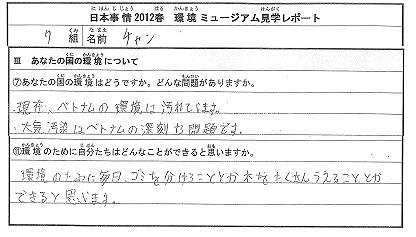 日本事情2012春 環境ミュージアム見学レポート
7 組 名前 チャン
Ⅲ あなたの国の環境について
⑦あなたの国の環境はどうですか。どんな問題がありますか。
・現在、ベトナムの環境は汚れてます。
・大気汚染はベトナムの深刻な問題です。
⑧環境のために自分たちはどんなことができると思いますか。
環境のために毎日、ゴミを分けることとか木をたくさんうえることとか
できると思います。